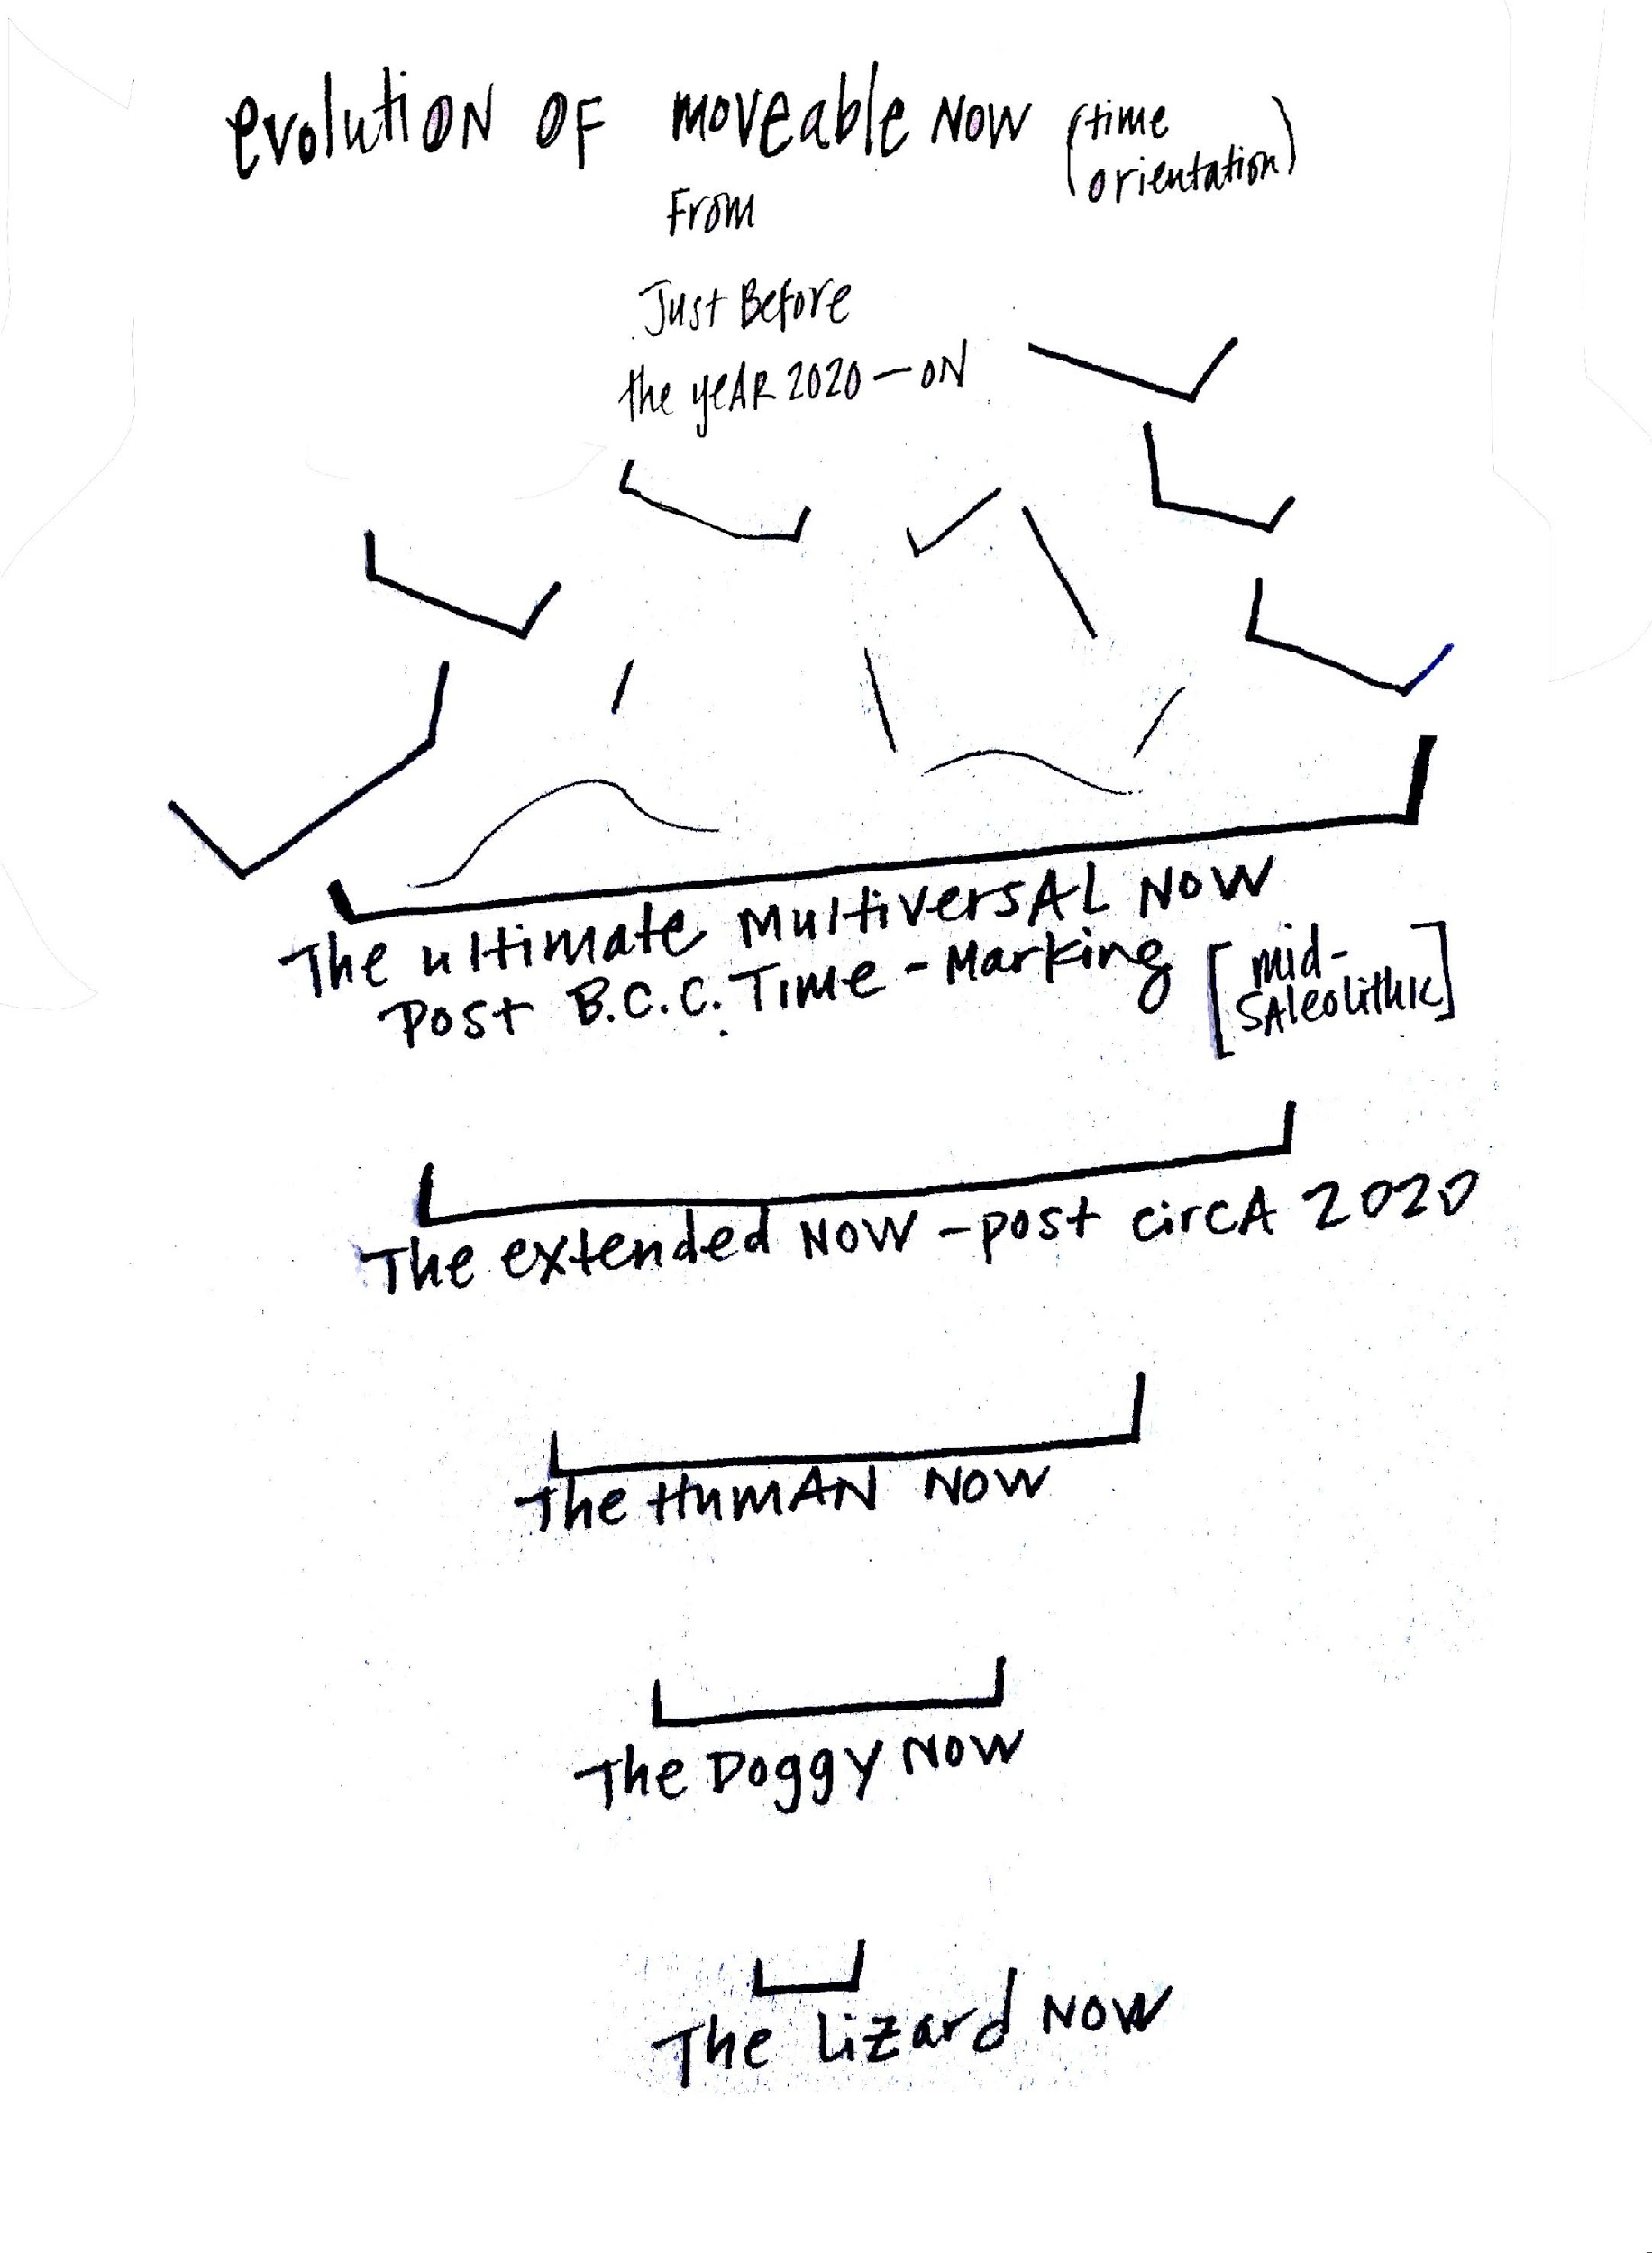 evolution OF moveable NOW (time orientation)
From
Just Before
the yeAR 2020 — ON
The ultimate MultiversAL NOW
Post B.C.C. Time - Marking [mid-SAleolithic]
The extended NOW - post circA 2020
The HumAN NOW
The Doggy NOW
The lizard NOW